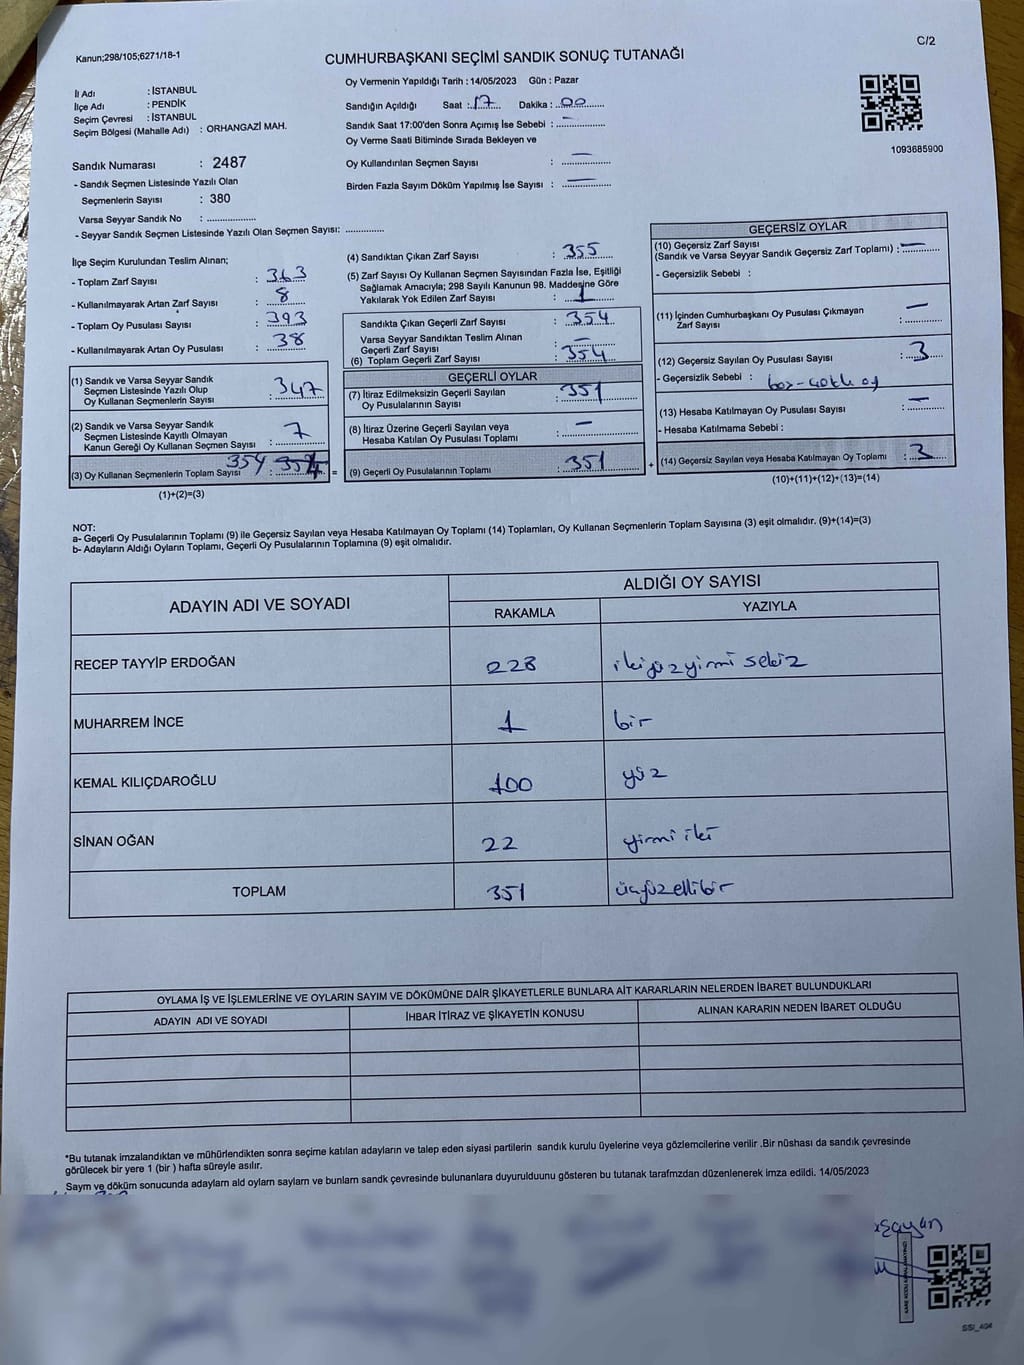 C/2
Kanun;298/105;6271/18-1
CUMHURBAŞKANI SEÇİMİ SANDIK SONUÇ TUTANAĞI
İl Adı : İSTANBUL
İlçe Adı : PENDİK
Seçim Çevresi : İSTANBUL
Seçim Bölgesi (Mahalle Adı) : ORHANGAZİ MAH.
Oy Vermenin Yapıldığı Tarih : 14/05/2023 Gün : Pazar
Sandığın Açıldığı Saat : 17 Dakika : 00
Sandık Saat 17:00'den Sonra Açımış İse Sebebi : –
Oy Verme Saati Bitiminde Sırada Bekleyen ve
Oy Kullandırılan Seçmen Sayısı : —
Birden Fazla Sayım Döküm Yapılmış İse Sayısı : —
1093685900
Sandık Numarası : 2487
- Sandık Seçmen Listesinde Yazılı Olan
Seçmenlerin Sayısı : 380
Varsa Seyyar Sandık No : ................
- Seyyar Sandık Seçmen Listesinde Yazılı Olan Seçmen Sayısı: .............
İlçe Seçim Kurulundan Teslim Alınan;
- Toplam Zarf Sayısı : 363
- Kullanılmayarak Artan Zarf Sayısı : 8
- Toplam Oy Pusulası Sayısı : 393
- Kullanılmayarak Artan Oy Pusulası : 38
(1) Sandık ve Varsa Seyyar Sandık
Seçmen Listesinde Yazılı Olup
Oy Kullanan Seçmenlerin Sayısı : 347
(2) Sandık ve Varsa Seyyar Sandık
Seçmen Listesinde Kayıtlı Olmayan
Kanun Gereği Oy Kullanan Seçmen Sayısı : 7
(3) Oy Kullanan Seçmenlerin Toplam Sayısı 354 : 354 =
(1)+(2)=(3)
(4) Sandıktan Çıkan Zarf Sayısı : 355
(5) Zarf Sayısı Oy Kullanan Seçmen Sayısından Fazla İse, Eşitliği
Sağlamak Amacıyla; 298 Sayılı Kanunun 98. Maddesine Göre
Yakılarak Yok Edilen Zarf Sayısı : 1
Sandıkta Çıkan Geçerli Zarf Sayısı : 354
Varsa Seyyar Sandıktan Teslim Alınan
Geçerli Zarf Sayısı : –
(6) Toplam Geçerli Zarf Sayısı : 354
GEÇERLİ OYLAR
(7) İtiraz Edilmeksizin Geçerli Sayılan
Oy Pusulalarının Sayısı : 351
(8) İtiraz Üzerine Geçerli Sayılan veya
Hesaba Katılan Oy Pusulası Toplamı : –
(9) Geçerli Oy Pusulalarının Toplamı : 351 +
GEÇERSİZ OYLAR
(10) Geçersiz Zarf Sayısı
(Sandık ve Varsa Seyyar Sandık Geçersiz Zarf Toplamı) : —
- Geçersizlik Sebebi :
(11) İçinden Cumhurbaşkanı Oy Pusulası Çıkmayan
Zarf Sayısı : –
(12) Geçersiz Sayılan Oy Pusulası Sayısı : 3
- Geçersizlik Sebebi :
(13) Hesaba Katılmayan Oy Pusulası Sayısı : –
- Hesaba Katılmama Sebebi :
(14) Geçersiz Sayılan veya Hesaba Katılmayan Oy Toplamı : 3
(10)+(11)+(12)+(13)=(14)
NOT:
a- Geçerli Oy Pusulalarının Toplamı (9) ile Geçersiz Sayılan veya Hesaba Katılmayan Oy Toplamı (14) Toplamları, Oy Kullanan Seçmenlerin Toplam Sayısına (3) eşit olmalıdır. (9)+(14)=(3)
b- Adayların Aldığı Oyların Toplamı, Geçerli Oy Pusulalarının Toplamına (9) eşit olmalıdır.
ADAYIN ADI VE SOYADI
ALDIĞI OY SAYISI
RAKAMLA YAZIYLA
RECEP TAYYİP ERDOĞAN 228 ikiyüzyirmi sekiz
MUHARREM İNCE 1 bir
KEMAL KILIÇDAROĞLU 100 yüz
SİNAN OĞAN 22 yirmi iki
TOPLAM 351 üçyüzellibir
OYLAMA İŞ VE İŞLEMLERİNE VE OYLARIN SAYIM VE DÖKÜMÜNE DAİR ŞİKAYETLERLE BUNLARA AİT KARARLARIN NELERDEN İBARET BULUNDUKLARI
ADAYIN ADI VE SOYADI İHBAR İTİRAZ VE ŞİKAYETİN KONUSU ALINAN KARARIN NEDEN İBARET OLDUĞU
*Bu tutanak imzalandıktan ve mühürlendikten sonra seçime katılan adayların ve talep eden siyasi partilerin sandık kurulu üyelerine veya gözlemcilerine verilir .Bir nüshası da sandık çevresinde
görülecek bir yere 1 (bir ) hafta süreyle asılır.
Sayım ve döküm sonucunda adaylarn ald oylarn saylarn ve bunlarn sandk çevresinde bulunanlara duyurulduunu gösteren bu tutanak tarafmzdan düzenlenerek imza edildi. 14/05/2023
SSI_404